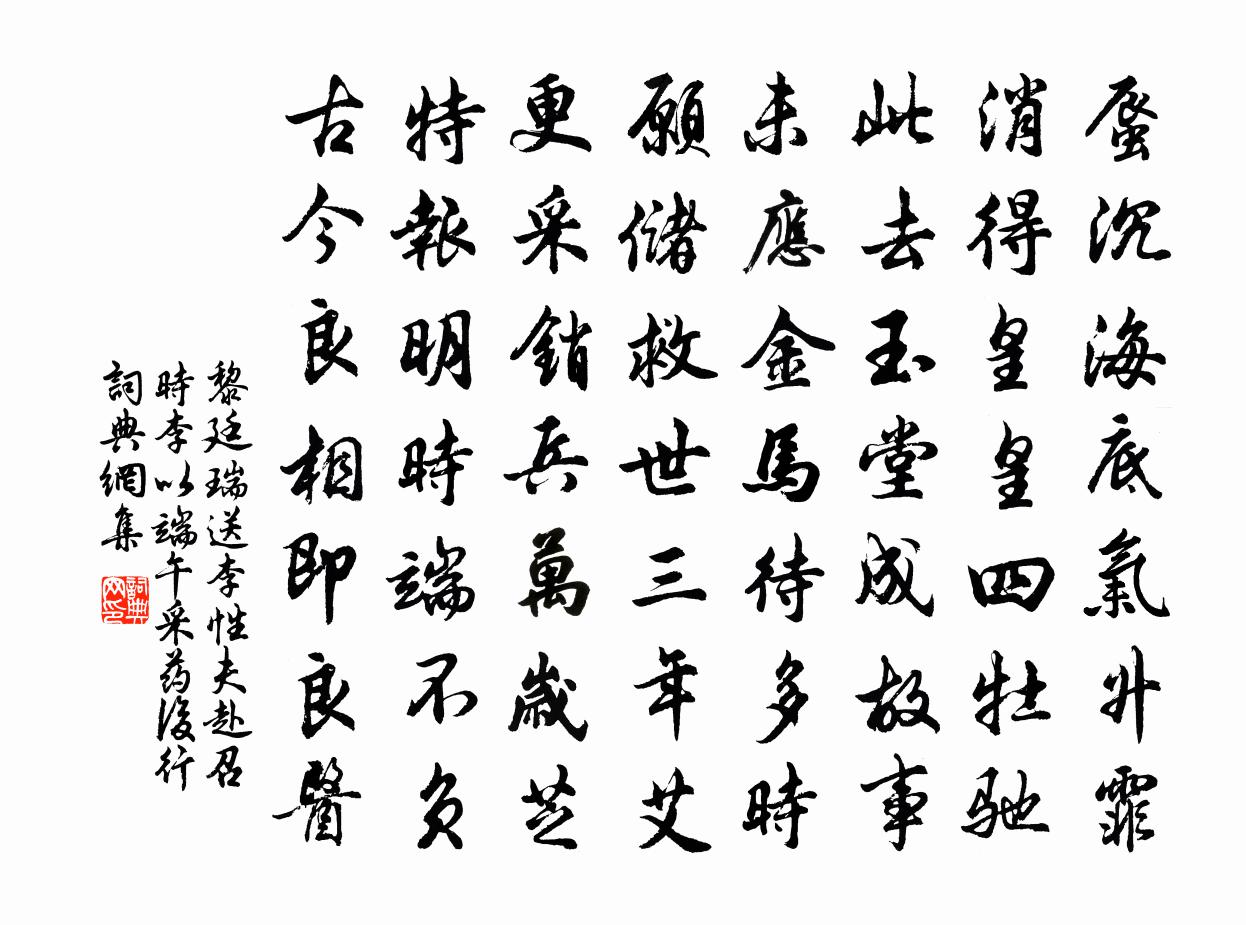 蜃沉海底氣升霏
消得皇皇四牡馳
此去玉堂成故事
未應金馬待多時
願儲救世三年艾
更采銷兵萬歲芝
特報明時端不負
古今良相即良醫
黎廷瑞送李性夫赴召
時李以端午采药後行
詞典網集
詞典网印